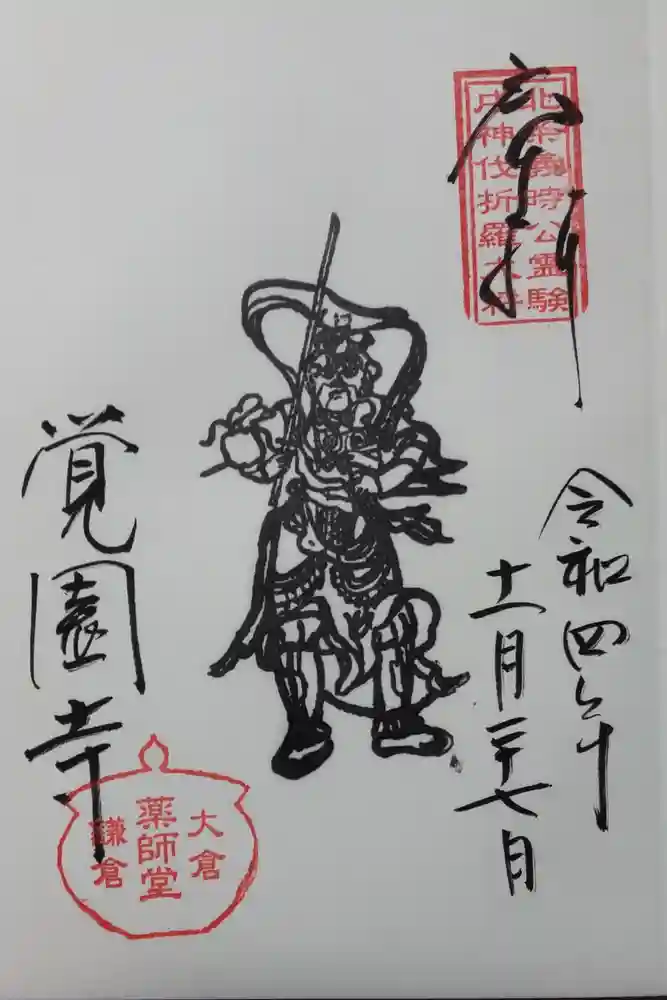 北条義時公霊験
戌神伐折羅大将
令和四年
十一月二十七日
覚園寺
大倉
薬師堂
鎌倉